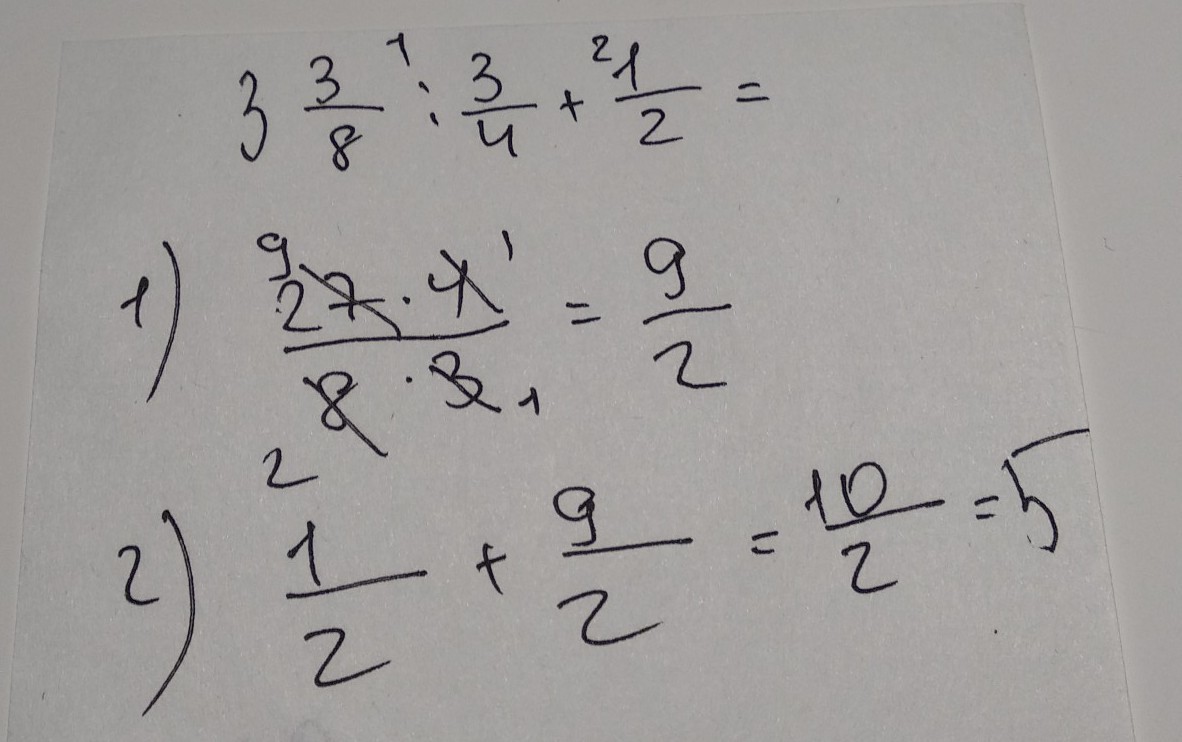 3 3/8 :¹ 3/4 +² 1/2 =
1) 27⁹ · 4¹ / 8₂ · 3₁ = 9/2
2) 1/2 + 9/2 = 10/2 = 5